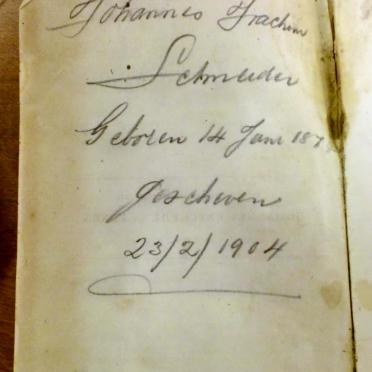 Johannes Joachim
Schneider
Geboren 14 Jani 187
gescheven
23/2/1904